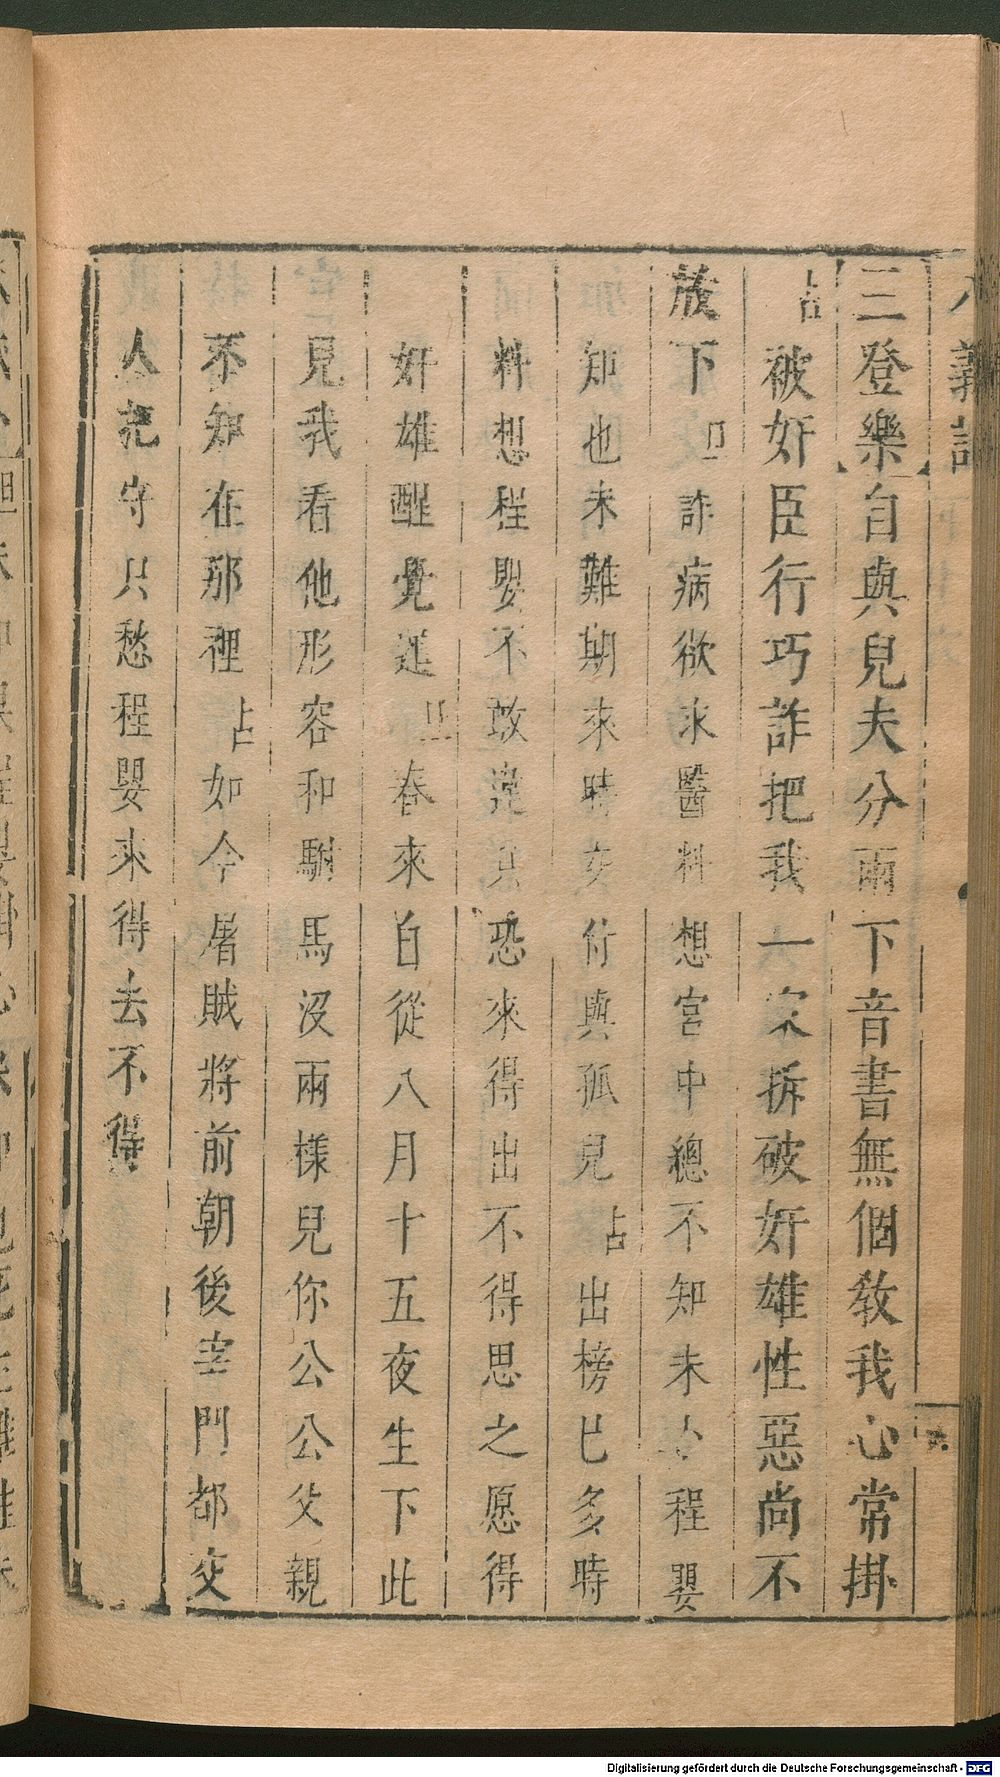 三登樂自與兒夫分兩下音書無個教我心常掛
被奸臣行巧詐把我一家拆破奸雄性惡尚不
放下 詐病欲求醫料想宮中總不知未 程嬰
知也未難期來時 付與孤兒占出榜已多時
料想程嬰不敢 恐來得出不得思之愿得
奸雄醒覺遲 春來自從八月十五夜生下此
見我看他形容和駙馬沒兩樣兒你公公父親
不知在那裡占如今屠賊將前朝後宰門都交
人把守只愁程嬰來得去不得
Digitalisierung gefördert durch die Deutsche Forschungsgemeinschaft - DFG